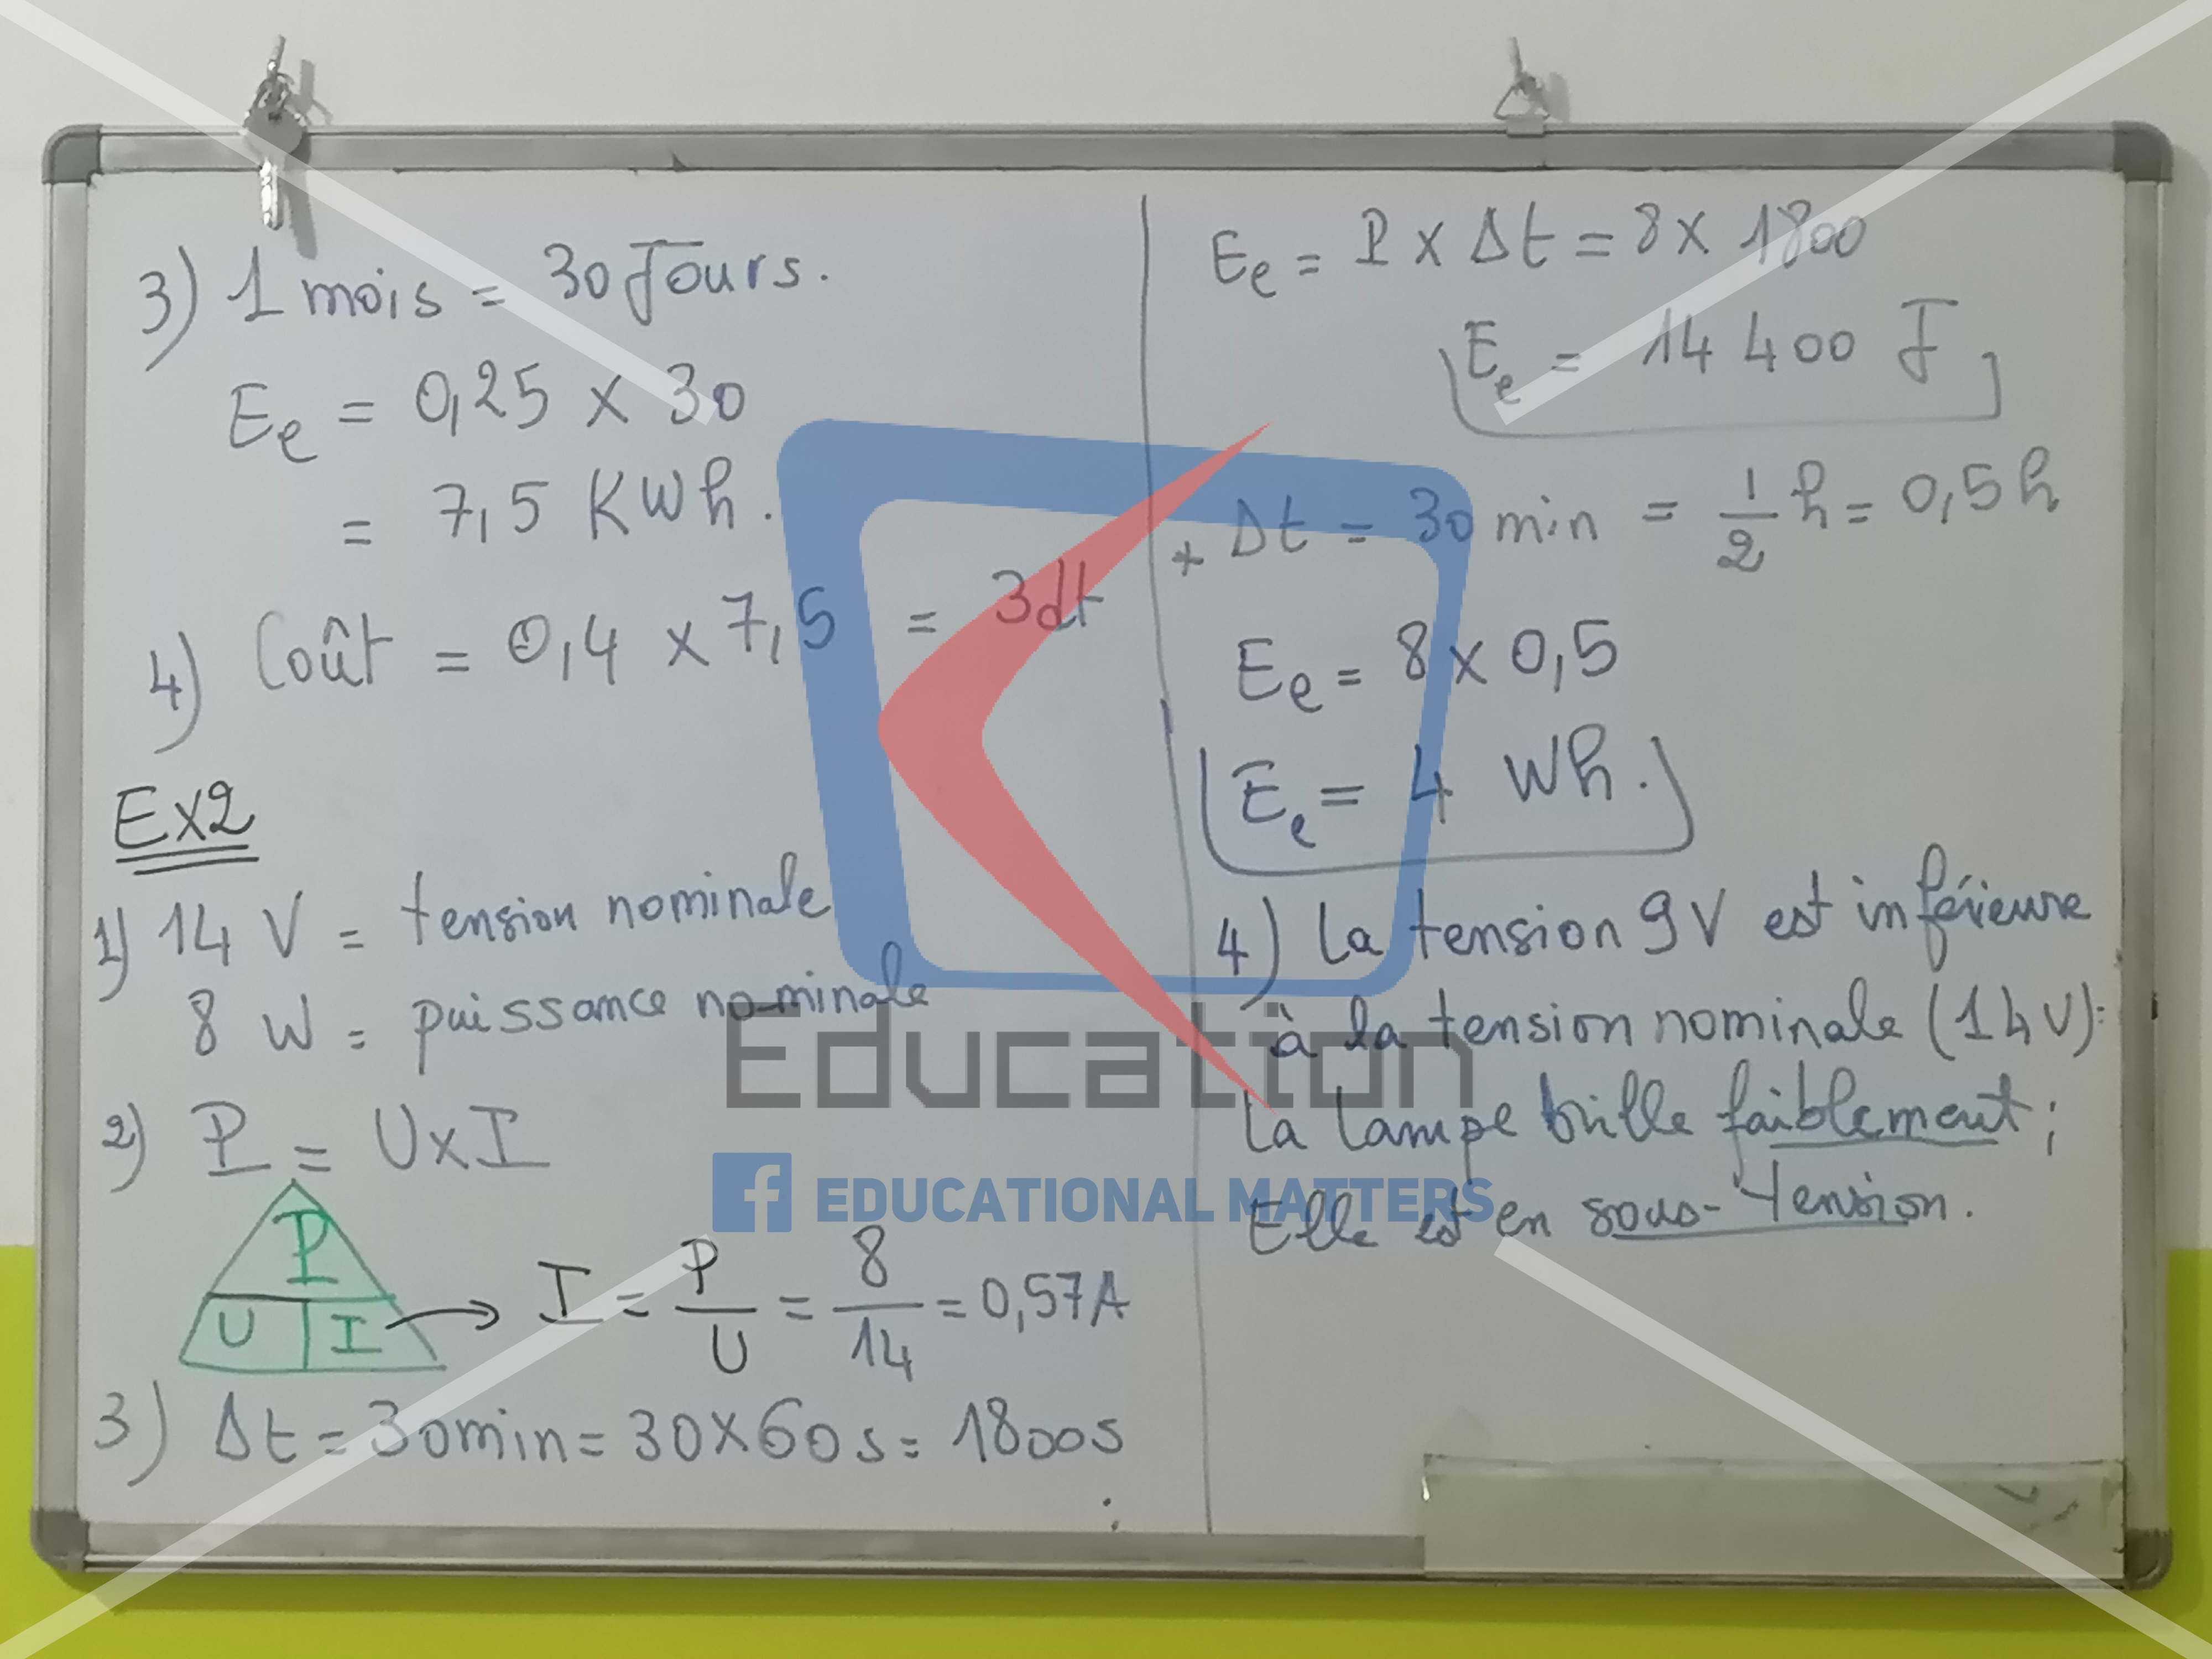 3) 1 mois = 30 Jours.
Ee = 0,25 x 30
= 7,5 KWh.
4) Coût = 0,4 x 7,5 = 3dt
Ex2
1) 14 V = tension nominale
8 W = puissance nominale
2) P = U x I
P
U I → I = P/U = 8/14 = 0,57A
3) Δt = 30min = 30x60s = 1800s
Ee = P x Δt = 8 x 1800
Ee = 14 400 J
* Δt = 30 min = 1/2 h = 0,5 h
Ee = 8 x 0,5
Ee = 4 Wh.
4) La tension 9V est inférieure
à la tension nominale (14V):
La lampe brille faiblement;
Elle est en sous-tension.
Education
f EDUCATIONAL MATTERS